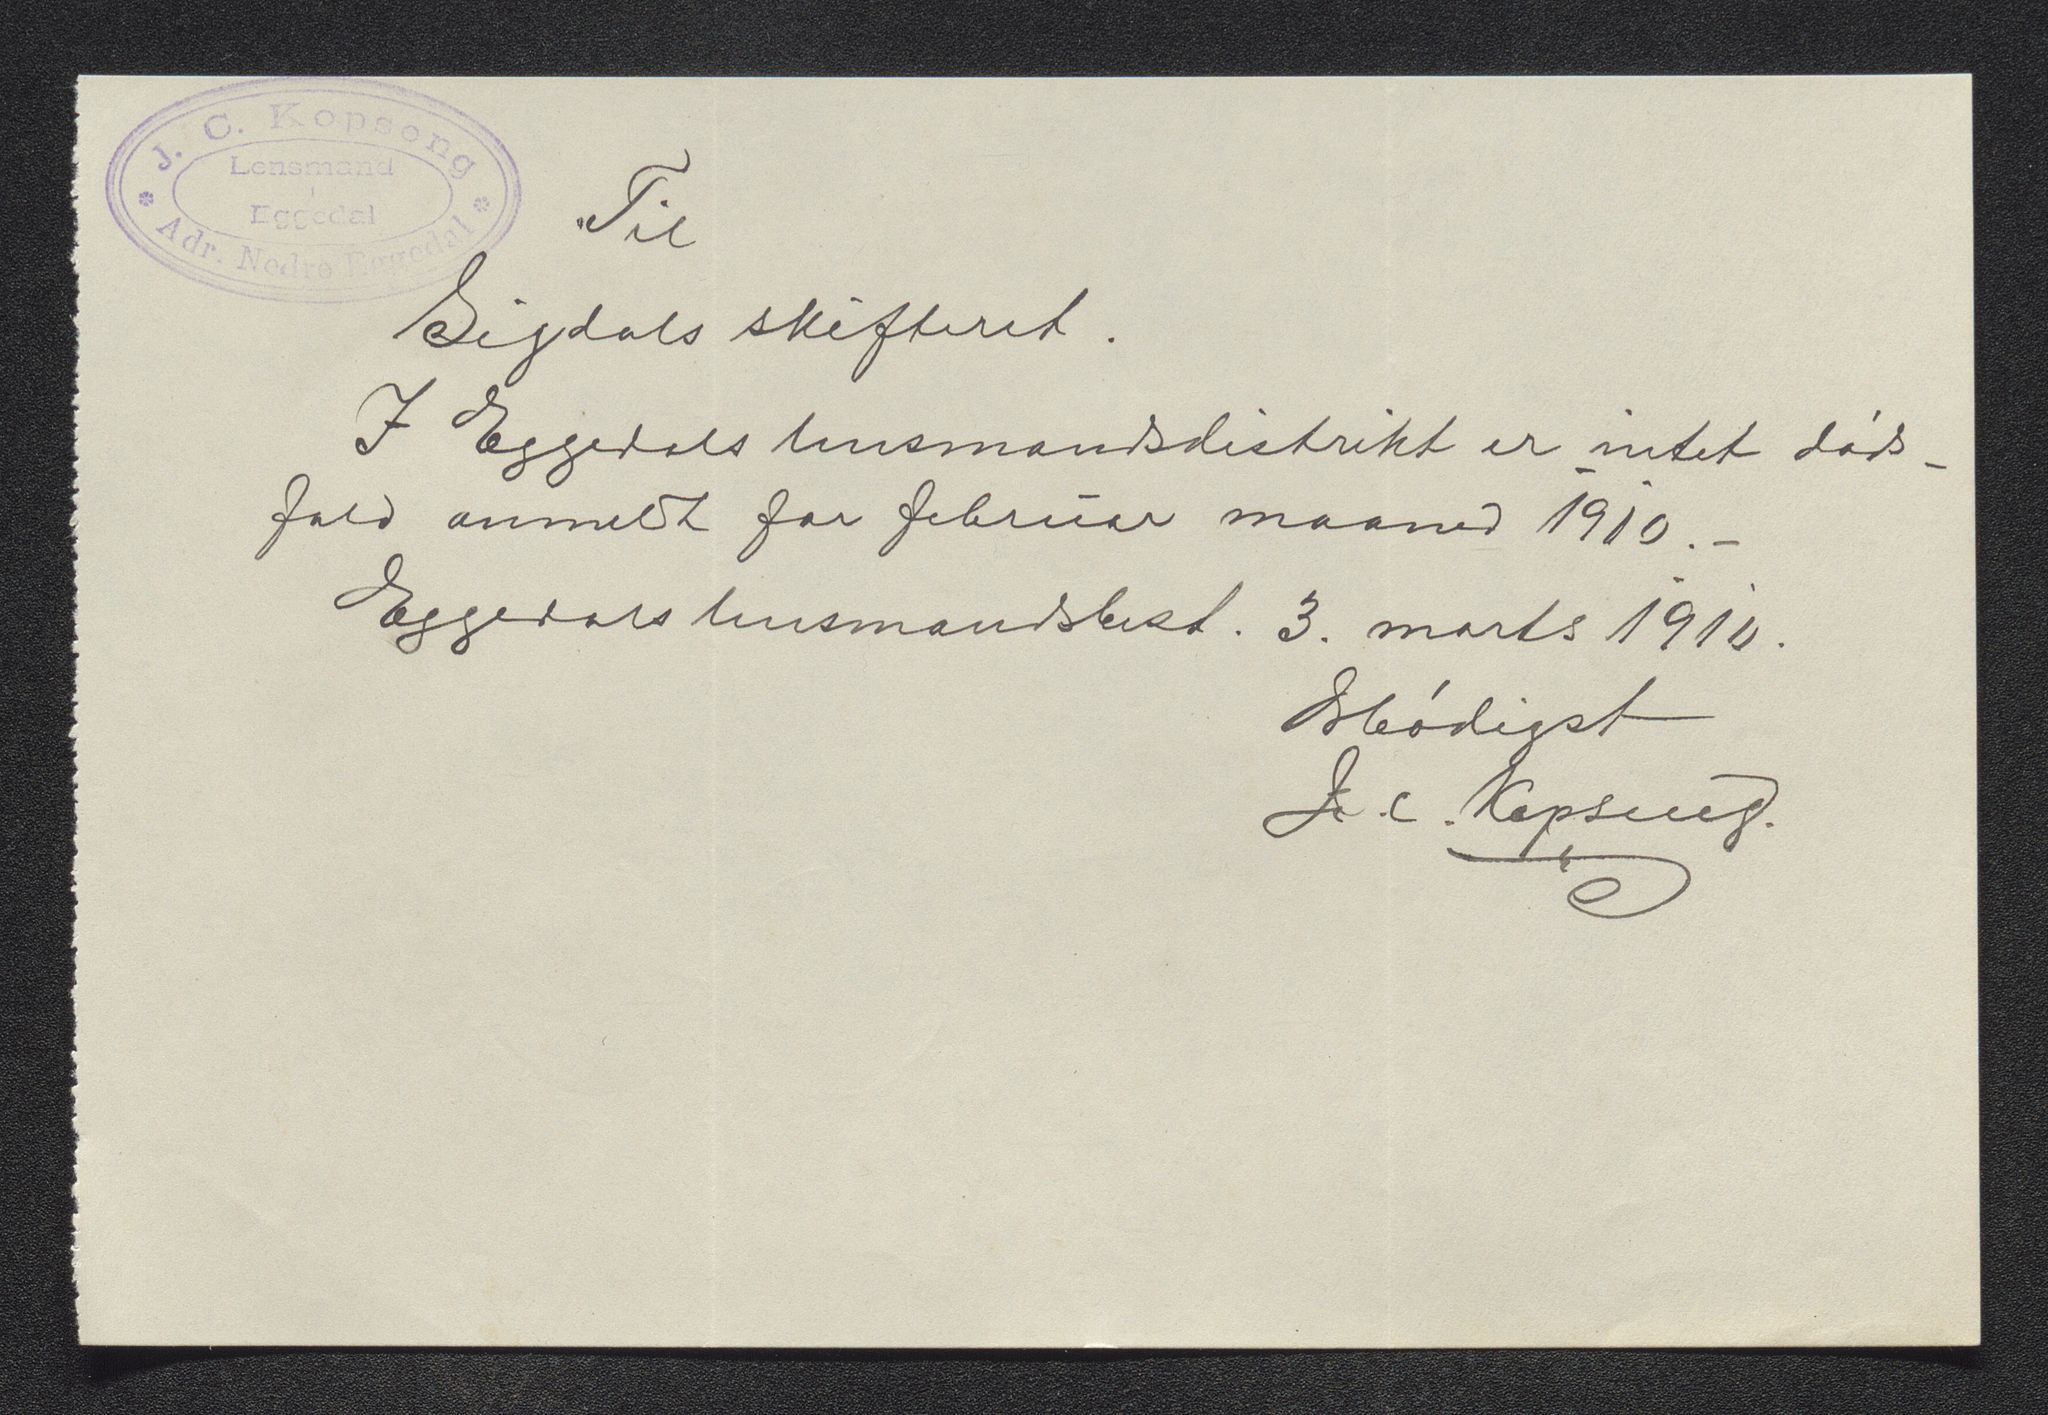 J. C. Kopseng
Lensmand
i
Eggedal
Adr. Nedre Eggedal
Til
Sigdals skifteret.
I Eggedals lensmandsdistrikt er intet døds-
fald anmeldt for februar maaned 1910.-
Eggedals lensmandsbest. 3. marts 1910.
Ærbødigst
J. C. Kopseng.